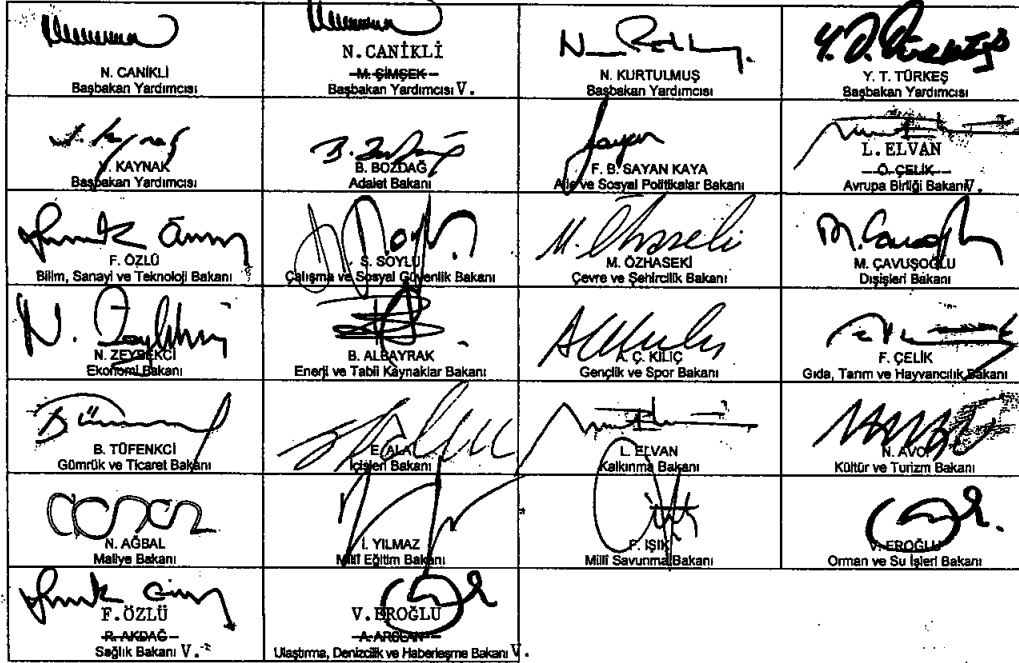 N. CANİKLİ
Başbakan Yardımcısı
N.CANİKLİ
M. ŞİMŞEK
Başbakan Yardımcısı V.
N. KURTULMUŞ
Başbakan Yardımcısı
Y. T. TÜRKEŞ
Başbakan Yardımcısı
KAYNAK
Başbakan Yardımcısı
B. BOZDAĞ
Adalet Bakanı
F. B. SAYAN KAYA
Aile ve Sosyal Politikalar Bakanı
L. ELVAN
Ö. ÇELİK
Avrupa Birliği Bakanı V.
F. ÖZLÜ
Bilim, Sanayi ve Teknoloji Bakanı
S. SOYLU
Çalışma ve Sosyal Güvenlik Bakanı
M. ÖZHASEKİ
Çevre ve Şehircilik Bakanı
M. ÇAVUŞOĞLU
Dışişleri Bakanı
N. ZEYBEKCİ
Ekonomi Bakanı
B. ALBAYRAK
Enerji ve Tabii Kaynaklar Bakanı
A. Ç. KILIÇ
Gençlik ve Spor Bakanı
F. ÇELİK
Gıda, Tarım ve Hayvancılık Bakanı
B. TÜFENKCİ
Gümrük ve Ticaret Bakanı
E. ALA
İçişleri Bakanı
L. ELVAN
Kalkınma Bakanı
N. AVCI
Kültür ve Turizm Bakanı
N. AĞBAL
Maliye Bakanı
İ. YILMAZ
Millî Eğitim Bakanı
F. IŞIK
Millî Savunma Bakanı
V. EROĞLU
Orman ve Su İşleri Bakanı
F.ÖZLÜ
R. AKDAĞ
Sağlık Bakanı V.
V.EROĞLU
A. ARSLAN
Ulaştırma, Denizcilik ve Haberleşme Bakanı V.